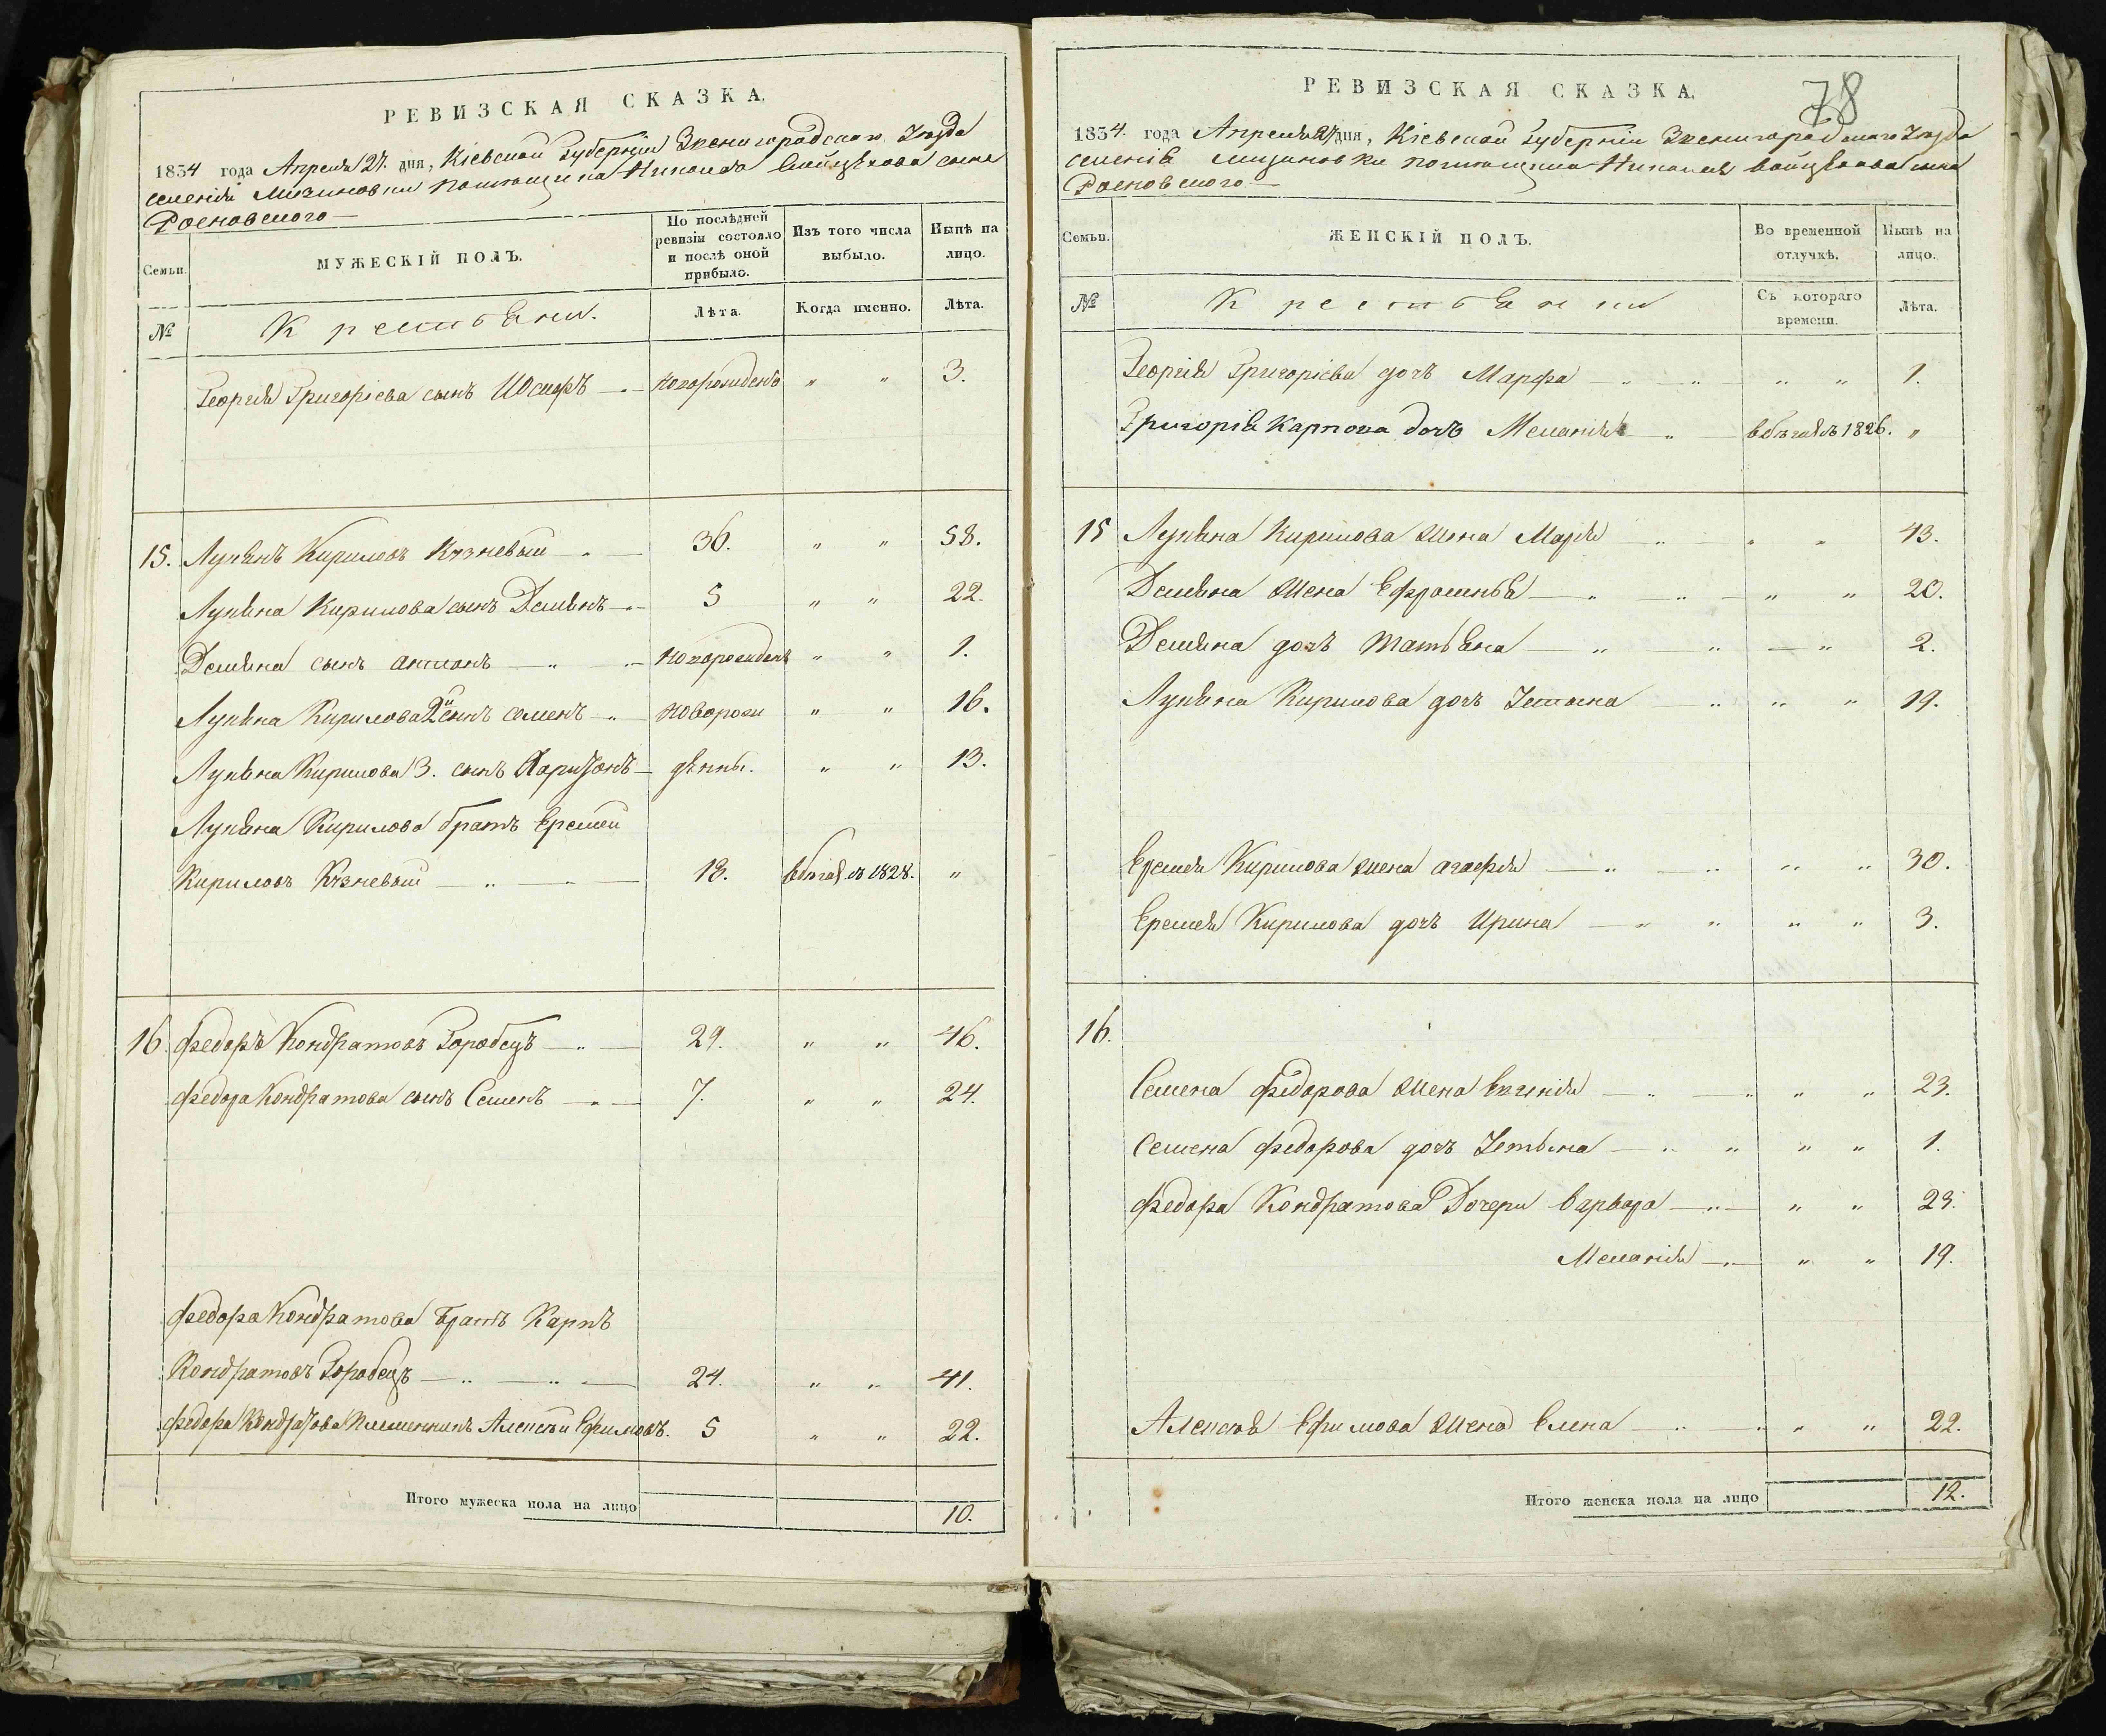 РЕВИЗСКАЯ СКАЗКА.
1834 года Апреля 27. дня, Кіевской Губерніи Звенигородскаго Уезда
селенія Мизиновки помещика Николая Войцехова сына
Росновского
Семьи.
МУЖЕСКІЙ ПОЛЪ.
По послѣдней ревизіи состояло и послѣ оной прибыло.
Изъ того числа выбыло.
Нынѣ на лицо.
№
Крестьяни.
Лѣта.
Когда именно.
Лѣта.
Георгія Григоріева сынъ Иосифъ новорожденъ " " 3.
15. Лукьянъ Кириловъ 36. " " 58.
Лукьяна Кирилова сынъ Демьянъ 5 " " 22.
Демьяна сынъ новорожденъ " " 1.
Лукьяна Кирилова 2й сынъ Семенъ новорож " " 16.
Лукьяна Кирилова 3. сынъ Харитонъ дѣнны. " " 13.
Лукьяна Кирилова братъ Еремей
Кириловъ 13. въ бегах. съ 1828. "
16 Федоръ Кондратовъ Горобецъ 29. " " 46.
Федора Кондратова сынъ Семенъ 7. " " 24.
Федора Кондратова братъ Карпъ
Кондратовъ Горобецъ 24. " " 41.
Федора Кондратова племянникъ Алексѣй Ефимовъ. 5 " " 22.
Итого мужеска пола на лицо 10.
78
РЕВИЗСКАЯ СКАЗКА.
1834. года Апреля 27 дня, Кіевской Губерніи Звенигородскаго Уезда
селенія Мизиновки помещика Николая Войцехова сына
Росновского
Семьи.
ЖЕНСКІЙ ПОЛЪ.
Во временной отлучкѣ.
Нынѣ на лицо.
№
Крестьяни
Съ котораго времени.
Лѣта.
Георгія Григоріева дочъ Марфа " " 1.
Григорія Карпова дочъ Меланія въ бегахъ 1826. "
15 Лукьяна Кирилова жена Марія " " 43.
Демьяна жена Ефросинья " " 20.
Демьяна дочъ Татьяна " 2.
Лукьяна Кирилова дочъ " " 19.
Еремея Кирилова жена Агафія " " 30.
Еремея Кирилова дочъ Ирина " " 3.
16.
Семена Федорова жена Евгенія " " 23.
Семена Федорова дочъ " " 1.
Федора Кондратова Дочери Варвара " " 23.
Меланія " " 19.
Алексѣя Ефимова жена Елена " " 22.
Итого женска пола на лицо 12.